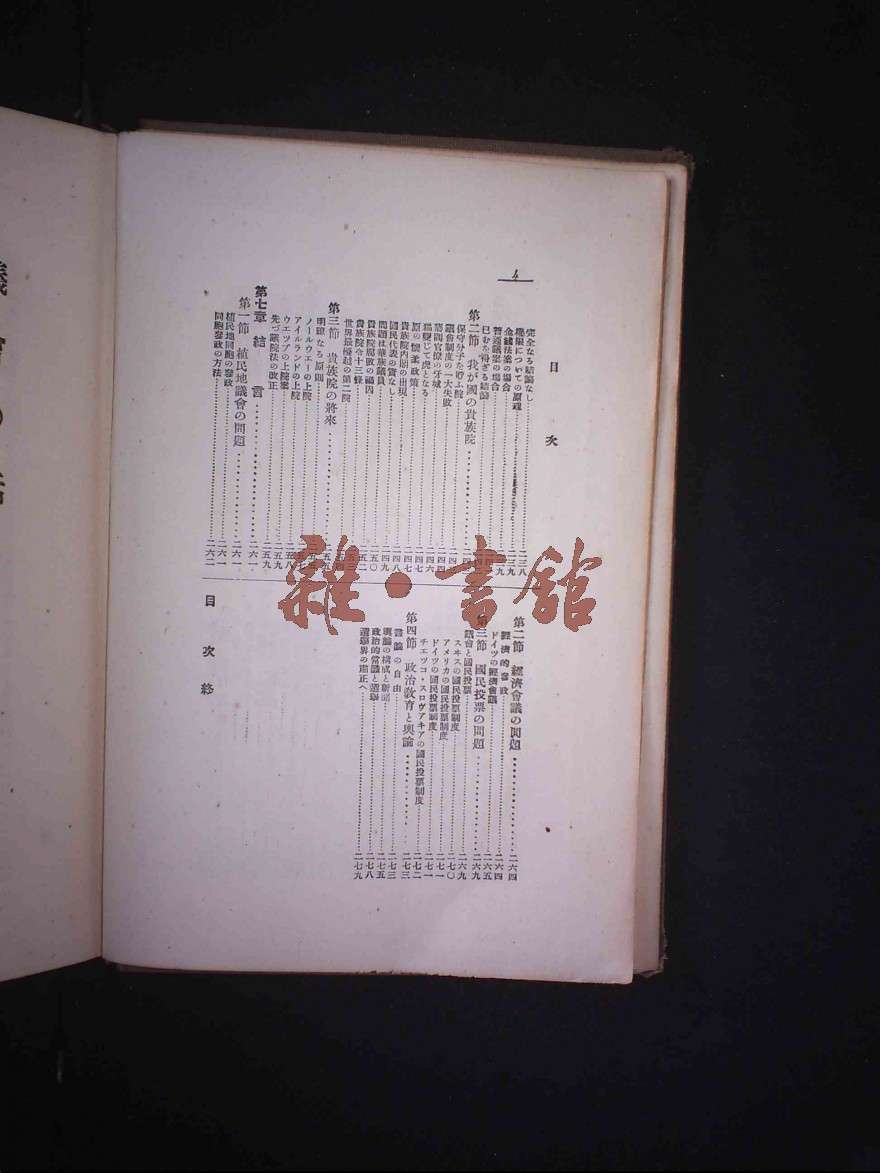 4
目次
完全なる結論なし 二三八
權限についての原理 二三九
金錢法案の場合
普通議案の場合
已むを得ざる結論
第二節 我が國の貴族院
保守分子を貯ふ院
議會制度の一大失敗 二四四
藩閥官僚の牙城 二四四
猫變じて虎となる 二四六
原の懷柔政策 二四七
貴族院内閣の出現 二四七
國民代表の實なし 二四八
問題は華族議員 二四九
貴族院腐敗の禍因 二五〇
貴族院令十三條 二五二
世界最優越の第二院
第三節 貴族院の將來
明瞭なる原則
ノールウエーの上院
アイルランドの上院
ウエツブの上院案 二五八
先づ議院法の改正 二五九
第七章 結言 二六一
第一節 植民地議會の問題 二六一
植民地同胞の參政 二六一
同胞參政の方法 二六二
第二節 經濟會議の問題 二六四
經濟的參政 二六四
ドイツの經濟會議 二六五
第三節 國民投票の問題 二六九
議會と國民投票 二六九
スヰスの國民投票制度 二七〇
アメリカの國民投票制度 二七一
ドイツの國民投票制度 二七一
チエツコ・スロヴアキアの國民投票制度 二七二
第四節 政治敎育と輿論 二七三
言論の自由 二七三
輿論の構成と新聞 二七五
政治的常識と選擧 二七八
選擧界の肅正へ 二七九
目次終
雜·書館